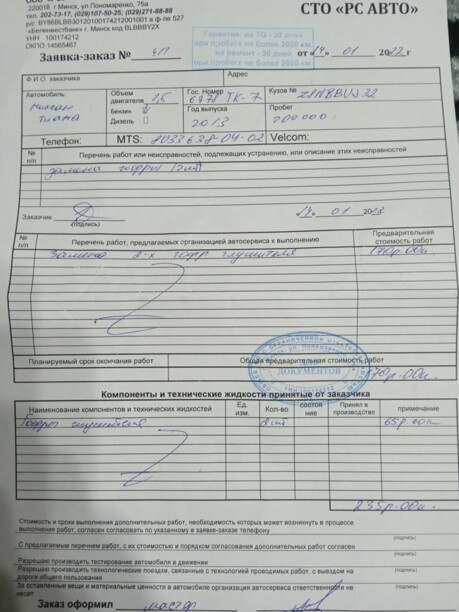 220018 г.Минск, ул.Пономаренко, 75а
тел. 202-73-17, (029)107-50-25; (029)271-88-88
р/с BY86BLBB30120100174212001001 в ф-ле 527
«Белинвестбанк» г. Минск код BLBBBY2X
УНН 100174212
ОКПО 14565467
СТО «РС АВТО»
Гарантия: на ТО - 30 дней
при пробеге не более 2000 км
на ремонт - 30 дней
при пробеге не более 2000 км
Заявка-заказ № 417
от «14» 01 2022 г
Ф.И.О. заказчика
Адрес
Автомобиль: Нисан Тиана
Объем двигателя 2,5
Бензин
Дизель
Гос. Номер 6978 ТК-7
Год выпуска 2013
Кузов №
Пробег 200000
Телефон:
MTS: 8033 628-04-02
Velcom:
№ п/п
Перечень работ или неисправностей, подлежащих устранению, или описание этих неисправностей
замена гофры (2шт)
Заказчик
(подпись)
«14» 01 202
№ п/п
Перечень работ, предлагаемых организацией автосервиса к выполнению
Предварительная стоимость работ
Замена 2-х гофр глушителя
170р.00к.
Планируемый срок окончания работ
Общая предварительная стоимость работ
170р.00к.
ДОКУМЕНТОВ
Компоненты и технические жидкости принятые от заказчика
Наименование компонентов и технических жидкостей
Ед. изм.
Кол-во
состояние
Принял в производство
примечание
Гофры глушителя
шт
65р.00к.
235р.00к.
Стоимость и сроки выполнения дополнительных работ, необходимость которых может возникнуть в процессе
выполнения работ, согласен согласовать по указанному в заявке-заказе телефону
(подпись)
С предлагаемым перечнем работ, с их стоимостью и порядком согласования дополнительных работ согласен
(подпись)
Разрешаю производить тестирование автомобиля в движении
Разрешаю производить технологические поездки, связанные с технологией проводимых работ, с выездом на
дороги общего пользования
(подпись)
За оставленные вещи и материальные ценности в автомобиле организация автосервиса ответственности не
несет
(подпись)
Заказ оформил мастер